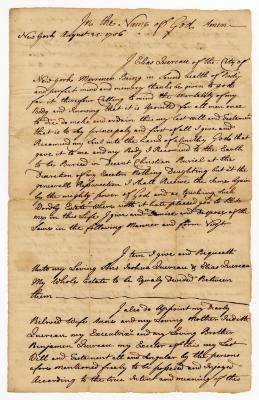 In the Name of God Amen
New York August 25: 1706
I Elias Ducreau of the City of
New York Being in Sound health of Body
and perfect mind and memory thanks be given to god
for it therefore Calling to mind the Mortality of my
Body and Knowing that it is Apointed for all men once
to Die do make and ordain this my last will and Testament
that is to Say principaly and first of all I give and
Recomend my Soul into the hands of almighty God that
gave it to me and my Body I Recomend to the Earth
to be Buried in Decent Christian Burial at the
Discretion of my Executor Nothing Doughting but at the
generall Resurrection I shall Receive the Same Again
by the mighty power of God and as touching Such
Worldly Estate where with it hath pleased god to Bless
me in this Life I give and and Dispose of the
Same in the following Manner and form Vizt
Item I give and Bequeath
Unto my Loving Sons Joshua Ducreau & Elias Ducreau
My Whole Estate to be Equaly Divided Between
them
I also do Appoint my Dearly
Beloved Wife and my Loving
Ducreau my Executrix and my Loving Brother
Benjamin Ducreau my Exector of this my Last
Will and Testament all and Singular by the persons
afore mentioned freely to be and Enjoyed
According to the true Intent and meaning of this